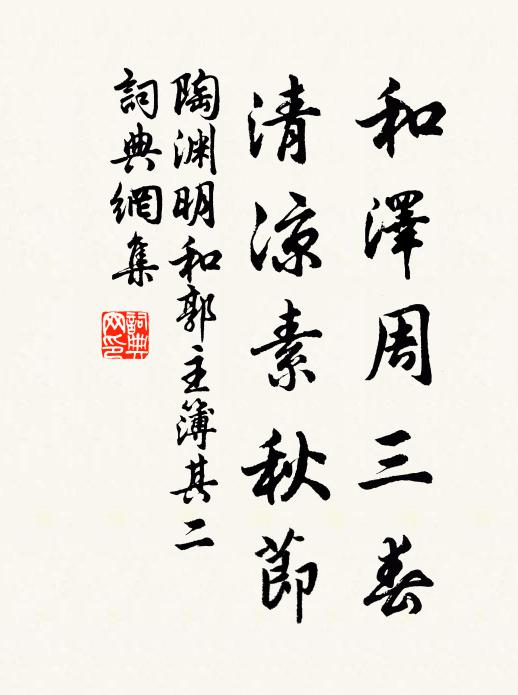 和澤周三春
清涼素秋節
陶淵明和郭主簿其二
詞典網集
詞典網印